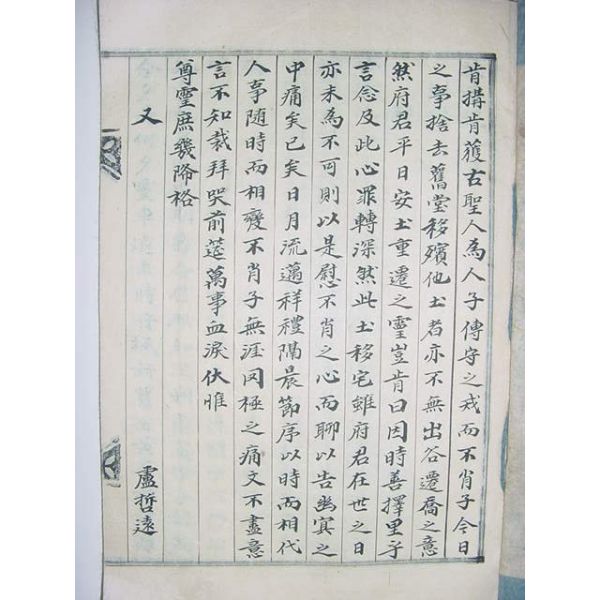 肯搆肯獲古聖人為人子傳守之戒而不肖子今日
之事捨去舊堂移殯他土者亦不無出谷遷喬之意
然府君平日安土重遷之靈豈肯曰因時善擇里乎
言念及此心罪轉深然此土移宅雖府君在世之日
亦未為不可則以是慰不肖之心而聊以告幽冥之
中痛矣已矣日月流邁祥禮隔晨節序以時而相代
人事随時而相變不肖子無涯罔極之痛文不盡意
言不知裁拜哭前筵萬事血淚伏惟
尊靈庶幾降格
又 盧哲遠